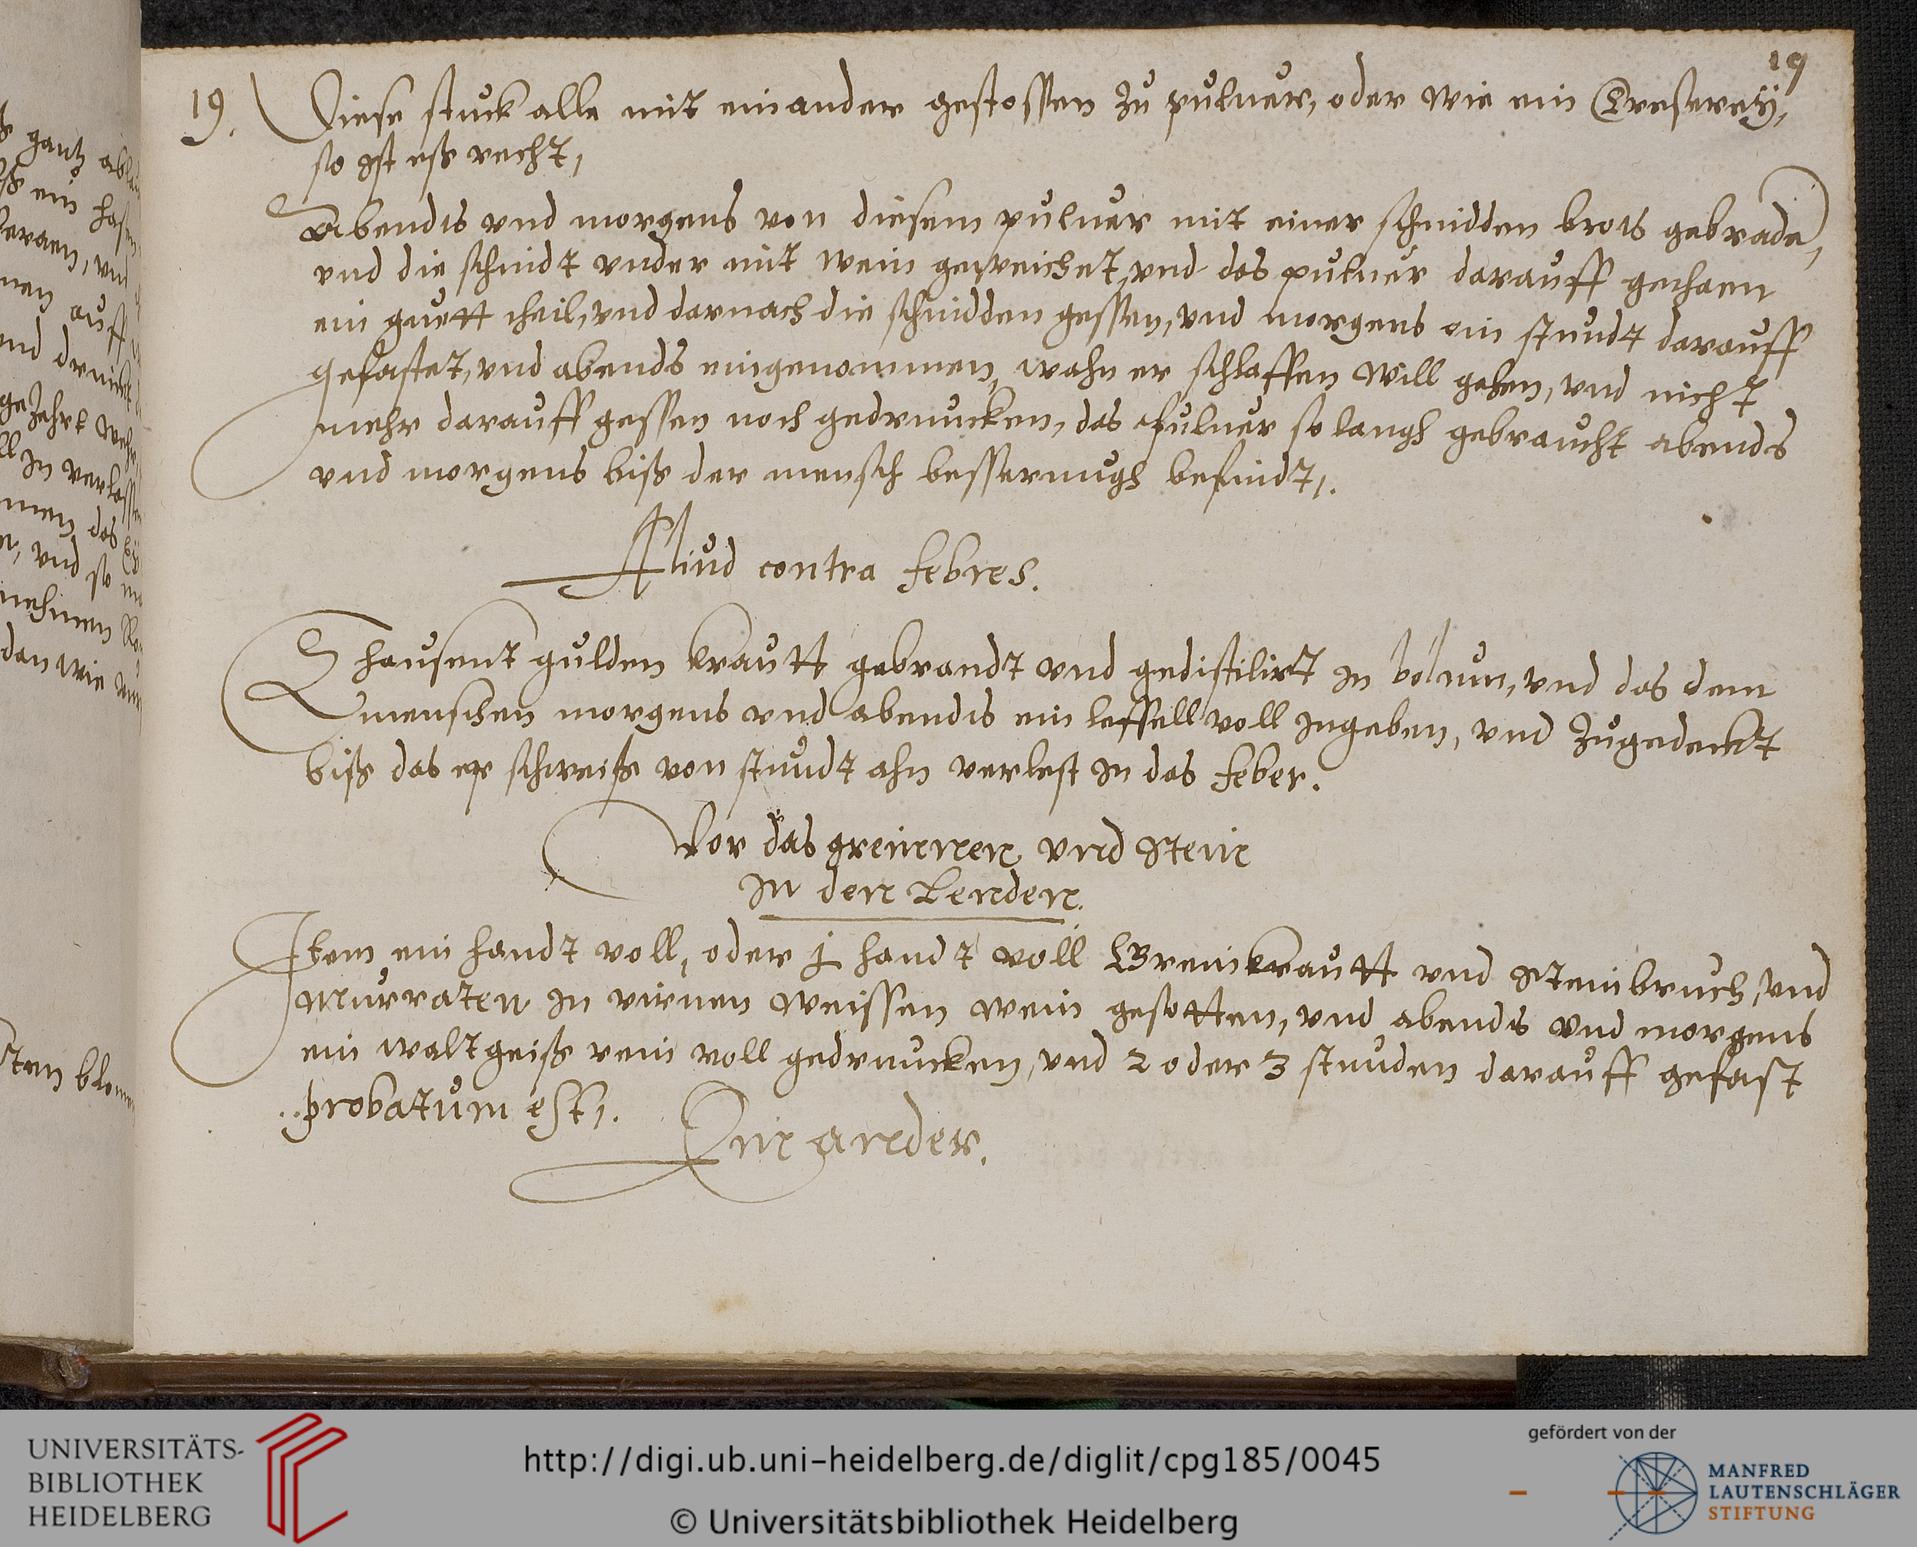 19
19. Diese stuck alle mit einander gestossen zu puluer, oder wie ein Treserey,
so ist eß recht,
Abendts vnd morgens von diesem puluer mit einer schnidden brots gebrade,
vnd die schnidt vnder mit wein geweichet, vnd das puluer darauff gethaen
ein guett theil, vnd darnach die schnidden gessen, vnd morgens ein stundt darauff
gefastet, vnd abends eingenommen, wahn er schlaffen will gehen, vnd nicht
mehr darauff gessen noch gedruncken, das pfuluer so langh gebraucht abends
vnd morgens biß der mensch besserungh befindt,.
Aliud contra febres.
Thausent gulden krautt gebrandt vnd gedistilirt in vnd das dem
menschen morgens vnd abendts ein leffell voll Ingeben, vnd zugedeckt
biß das er schweiß von stundt ahn verlest In das feber.
Vor das greinnen vnd stein
In den Lenden.
Item ein handt voll, oder handt voll Breinkrautt vnd steinbruch, vnd
murraten In weissen wein gesotten, vnd abends vnd morgens
ein voll gedruncken, vnd 2 oder 3 stunden darauff gefast
probatum est,.
Ein ander.
gantz
ein
auff
vnd
In
das
vnd so
nehmen
dan wie
UNIVERSITÄTS-
BIBLIOTHEK
HEIDELBERG
http://digi.ub.uni-heidelberg.de/diglit/cpg185/0045
© Universitätsbibliothek Heidelberg
gefördert von der
MANFRED
LAUTENSCHLÄGER
STIFTUNG